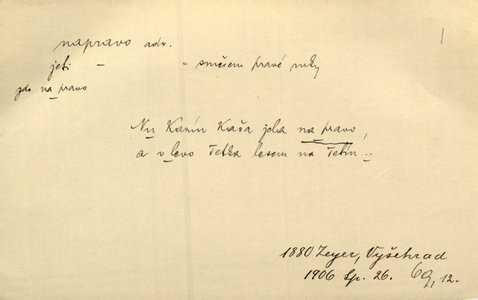 napravo adv.
jeti - - směrem pravé ruky
jdo na pravo
Na Kazín Kaša jela na pravo,
a v levo Tetka lesem na Tetín...
1880 Zeyer, Vyšehrad
1906 Sp. 26. 69, 12.